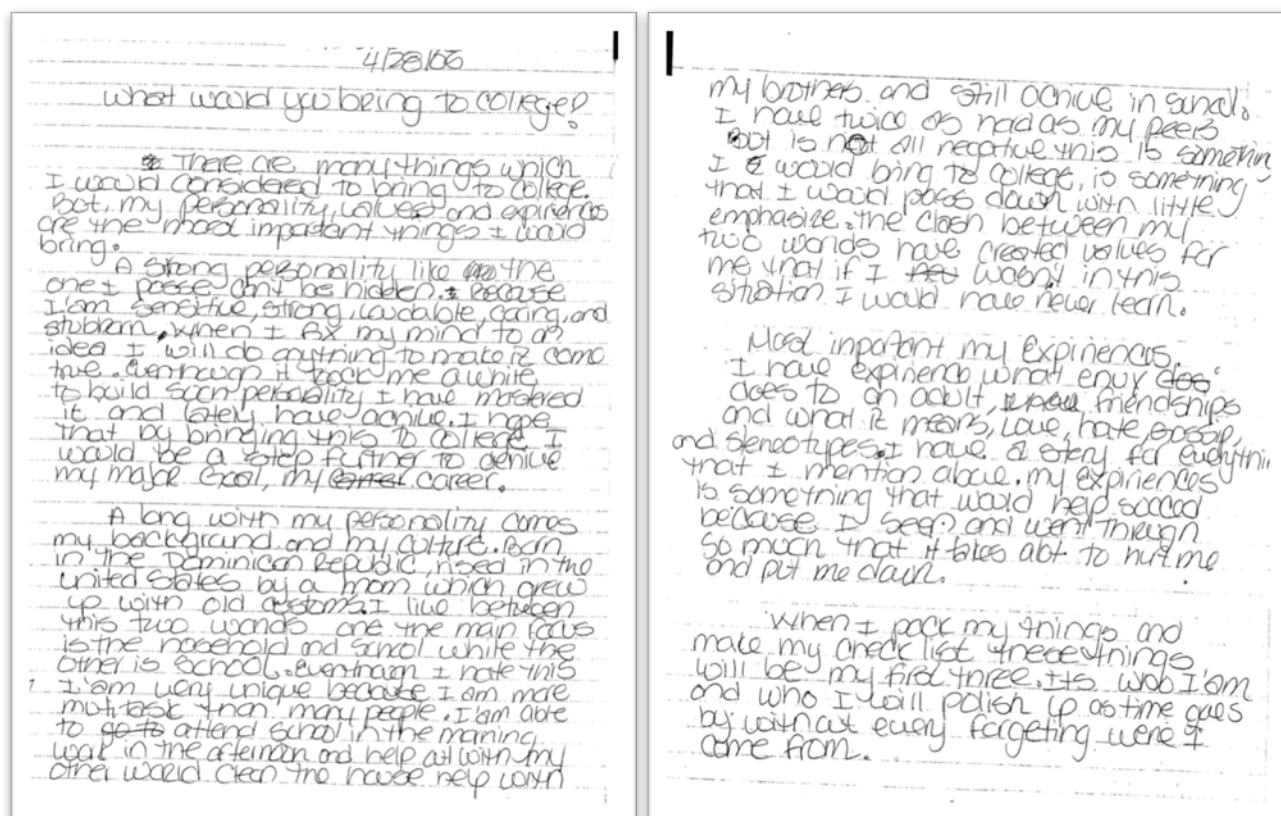 4/28/06
What would you bring to college?
There are many things which
I would considered to bring to college.
But, my personality, values and expiriences
are the most important things I would
bring.
A strong personality like the
one I posse can't be hidden. Because
I'am sensitive, strong, laudable, caring, and
stubborn, when I fix my mind to an
idea I will do anything to make it come
true. Eventhough it took me a white
to build such personality I have mastered
it and lately have achive. I hope
that by bringing this to college I
would be a step further to achive
my major Goal, my career.
A long with my personality comes
my background and my culture. Born
in the Dominican Republic, rised in the
united states by a mom which grew
up with old customs. I live between
this two worlds one the main focus
is the household and school while the
other is school. Eventhough I hate this
I'am very unique because I am more
multitask than many people. I'am able
to go to attend school in the morning
work in the afternoon and help out with my
other world clean the house help with
my brothers and still achive in school.
I have twice as had as my peers
But is not all negative this is something
I would bring to college, is something
that I would pass down with little
emphasize. The clash between my
two worlds have created values for
me that if I wasn't in this
sitution I would have never learn.
Most inportant my expiriences.
I have expirience what envy
does to an adult, friendships
and what it means, Love, hate, gossip,
and stereotypes. I have a story for everythin
that I mention above. my expiriences
is something that would help succed
because I seen and went through
so much that it takes alot to hurt me
and put me down.
When I pack my things and
make my check list these things
will be my first three. Its who I am
and who I will polish up as time goes
by without every forgeting were I
come from.